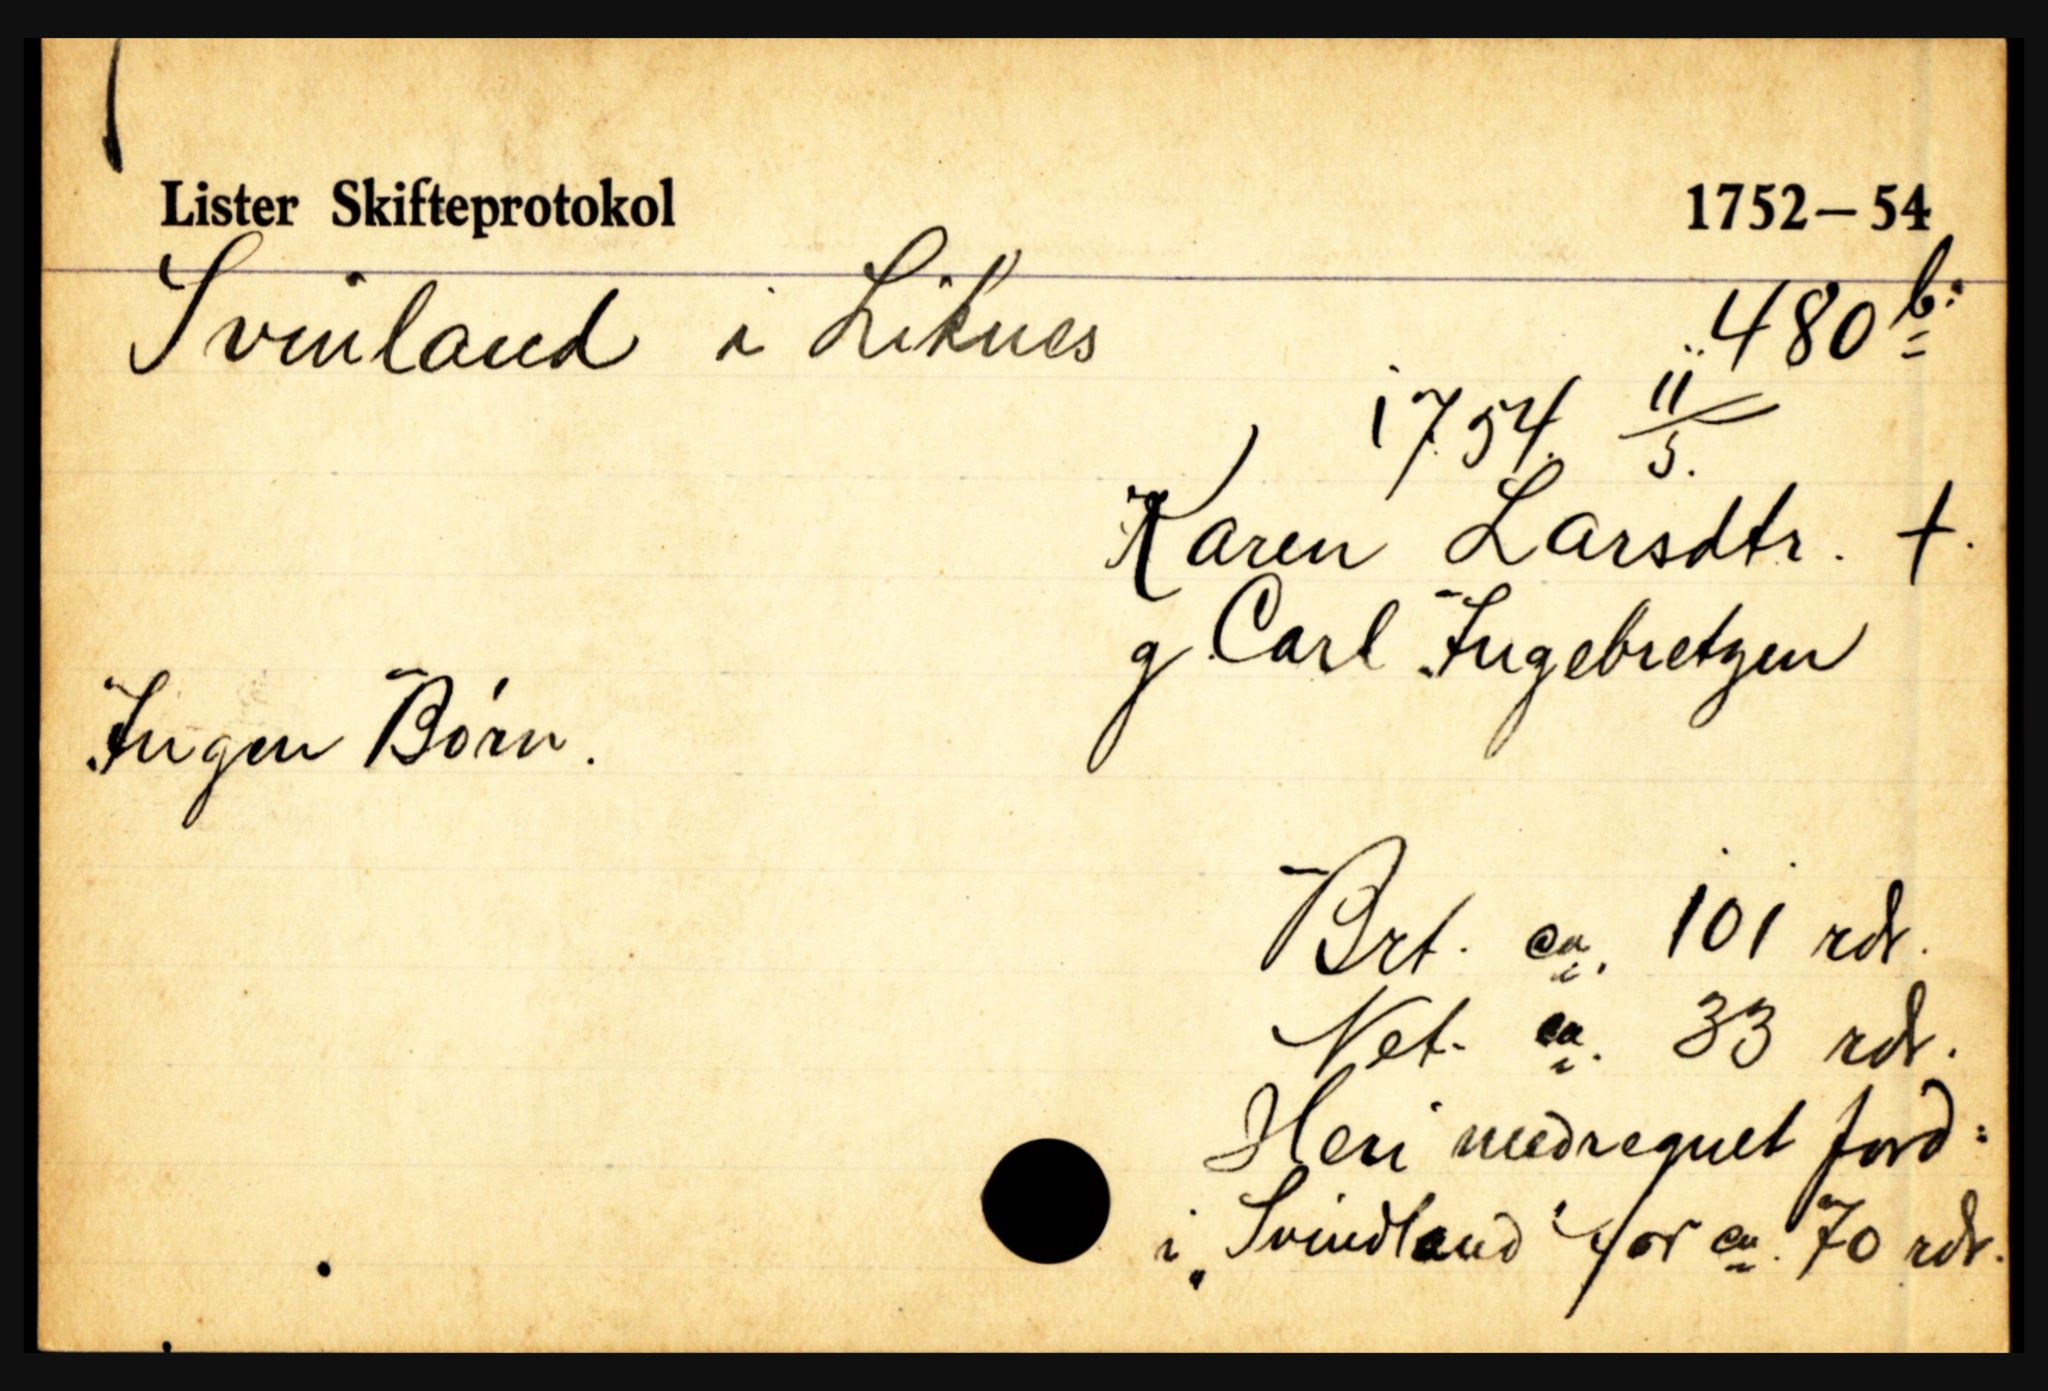 Lister Skifteprotokol 1752–54
Svinland i Liknes 480 b:
1754. 11/5.
Karen Larsdtr. +.
g. Carl Ingebretzen
Ingen Børn.
Brt. ca. 101 rdr.
Net. ca. 33 rdr.
Heri medregnet jord:
i „Svindland“ for ca. 70 rdr.